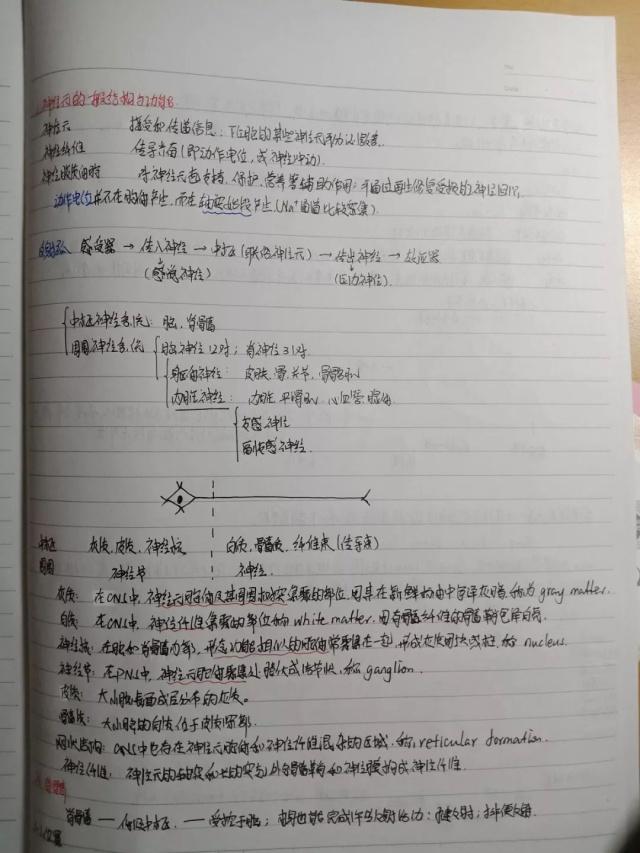 神经元的一般结构与功能
神经元 接受和传递信息,下丘脑的某些神经元可分泌激素.
神经纤维 传导兴奋(即动作电位,或神经冲动).
神经胶质细胞 对神经元起支持、保护、营养等辅助作用;可通过再生修复受损的神经
动作电位并不在胞体产生,而在轴突始段产生(Na⁺通道比较密集).
反射弧 感受器 → 传入神经 → 中枢(联络神经元) → 传出神经 → 效应器
(感觉神经) (运动神经)
中枢神经系统: 脑、脊髓
周围神经系统 脑神经12对; 脊神经31对
躯体神经: 皮肤、骨、关节、骨骼肌
内脏神经: 内脏、平滑肌、心血管、腺体
交感神经
副交感神经
中枢 灰质、皮质、神经核 白质、髓质、纤维束(传导束)
周围 神经节 神经
灰质: 在CNS中,神经元胞体及其树突聚集的部位,因其在新鲜标本中色泽灰暗,称为gray matter.
白质: 在CNS中,神经纤维聚集的部位称为white matter.因有髓纤维的髓鞘色泽白亮.
神经核: 在脑和脊髓内部,形态功能相似的胞体常聚集在一起,形成灰质团块或柱,称nucleus.
神经节: 在PNS中,神经元胞体聚集处膨大成结节状,称ganglion.
皮质: 大小脑表面成层分布的灰质.
髓质: 大小脑的白质位于皮质深部.
网状结构: CNS中也存在神经元胞体和神经纤维混杂的区域,称reticular formation.
神经纤维: 神经元的轴突和长的突起外的髓鞘和神经膜构成神经纤维.
脊髓 — 低级中枢. — 受控于脑; 自身也能完成许多反射活动: 腱反射; 排便反射.
位置